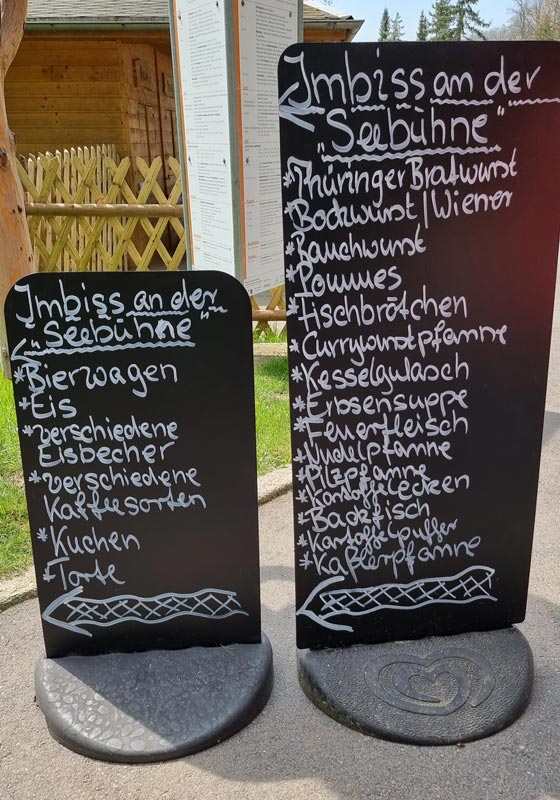 Imbiss an der
"Seebühne"
*Bierwagen
*Eis
*verschiedene
Eisbecher
*verschiedene
Kaffeesorten
*Kuchen
*Torte
Imbiss an der
"Seebühne"
*Thüringer Bratwurst
*Bockwurst/Wiener
*Bauchwurst
*Pommes
*Fischbrötchen
*Currywurstpfanne
*Kesselgulasch
*Erbsensuppe
*Feuerfleisch
*Nudelpfanne
*Pilzpfanne
*Kartoffelecken
*Backfisch
*Kartoffelpuffer
*Kaßlerpfanne